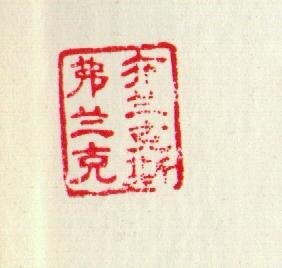 布兰斯
弗兰克